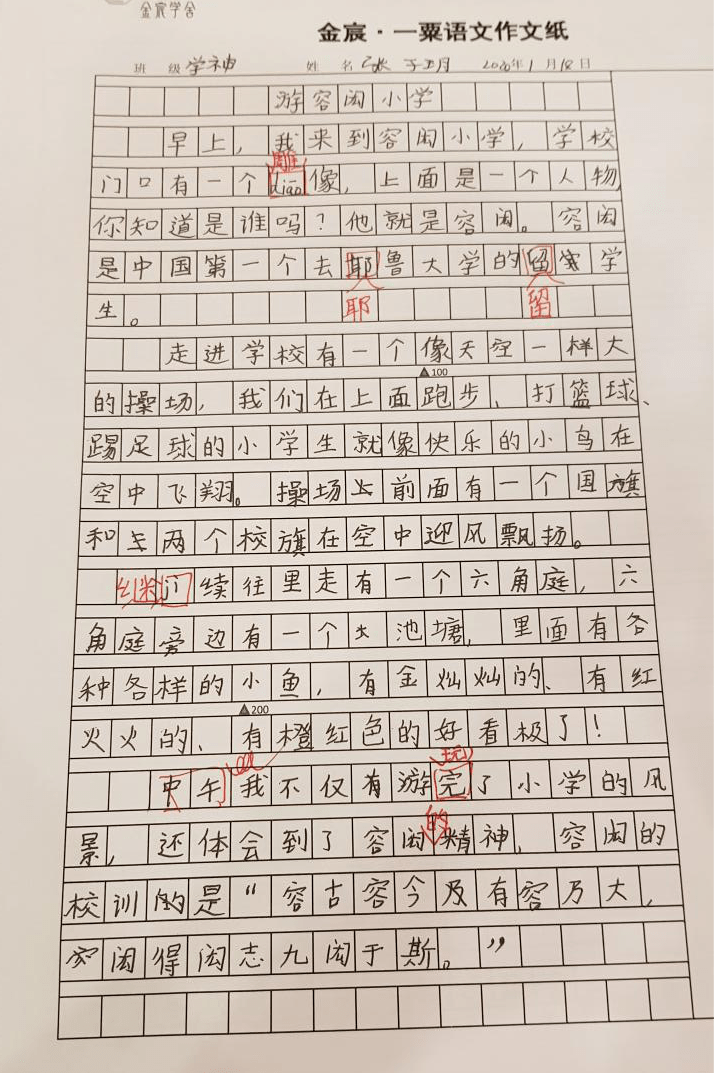 金宸学舍
金宸·一粟语文作文纸
班 级 学神 姓 名 张 2020年1月18日
游容闳小学
早上，我来到容闳小学，学校
雕
门口有一个diāo像，上面是一个人物，
你知道是谁吗？他就是容闳。容闳
是中国第一个去耶鲁大学的留学
生。
耶 留
走进学校有一个像天空一样大
▲100
的操场，我们在上面跑步、打篮球、
踢足球的小学生就像快乐的小鸟在
空中飞翔。操场前面有一个国旗
和两个校旗在空中迎风飘扬。
继 jì续往里走有一个六角庭，六
角庭旁边有一个池塘，里面有各
种各样的小鱼，有金灿灿的、有红
▲200
火火的、有橙红色的好看极了！
玩
中午我不仅有游完了小学的风
的
景，还体会到了容闳精神，容闳的
校训的是“容古容今及有容乃大，
闳得闳志九闳于斯。”